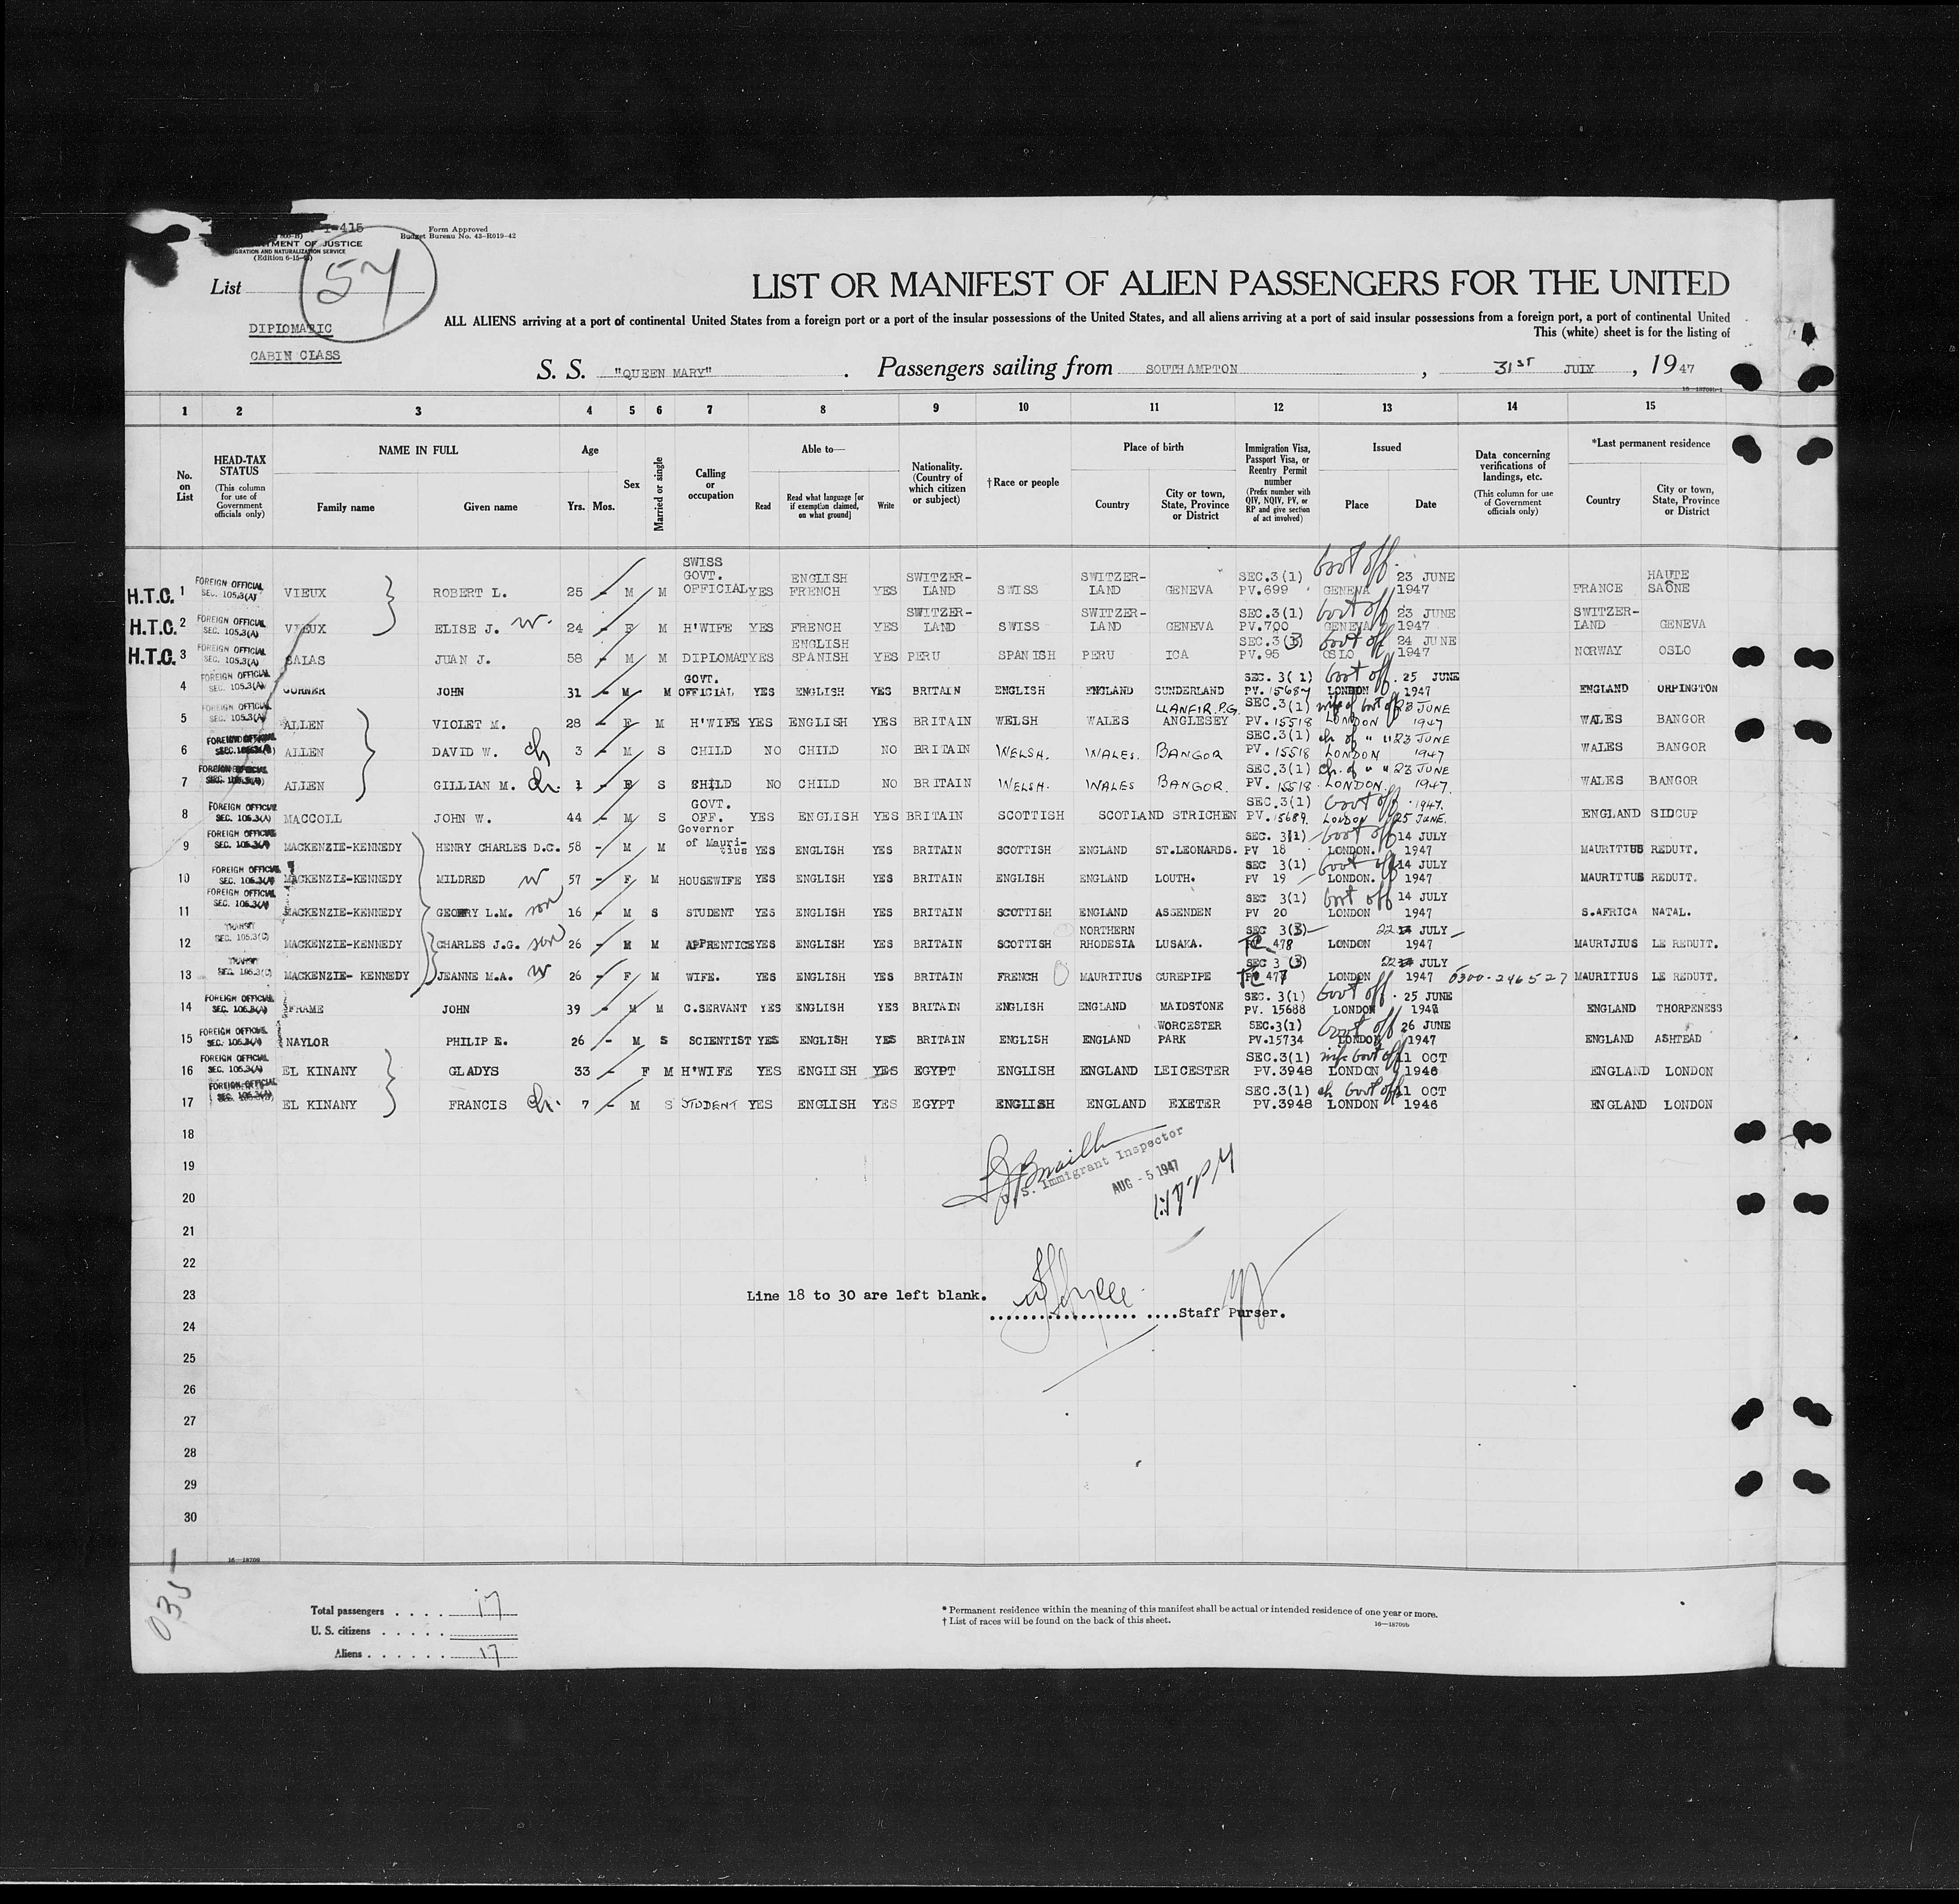 I-415
Form Approved
Budget Bureau No. 43-R019-42
MENT OF JUSTICE
IMMIGRATION AND NATURALIZATION SERVICE
(Edition 6-15-
List 57
DIPLOMATIC
CABIN CLASS
LIST OR MANIFEST OF ALIEN PASSENGERS FOR THE UNITED
ALL ALIENS arriving at a port of continental United States from a foreign port or a port of the insular possessions of the United States, and all aliens arriving at a port of said insular possessions from a foreign port, a port of continental United
This (white) sheet is for the listing of
S. S. "QUEEN MARY" . Passengers sailing from SOUTHAMPTON , 31ST JULY , 19 47
16—18709b-1
1 2 3 4 5 6 7 8 9 10 11 12 13 14 15
No. on List
HEAD-TAX STATUS (This column for use of Government officials only)
NAME IN FULL Family name Given name
Age Yrs. Mos.
Sex
Married or single
Calling or occupation
Able to— Read Read what language [or if exemption claimed, on what ground] Write
Nationality. (Country of which citizen or subject)
†Race or people
Place of birth Country City or town, State, Province or District
Immigration Visa, Passport Visa, or Reentry Permit number (Prefix number with QIV, NQIV, PV, or RP and give section of act involved)
Issued Place Date
Data concerning verifications of landings, etc. (This column for use of Government officials only)
*Last permanent residence Country City or town, State, Province or District
H.T.C. 1 FOREIGN OFFICIAL SEC. 105.3(A) VIEUX ROBERT L. 25 - M M SWISS GOVT. OFFICIAL YES ENGLISH FRENCH YES SWITZER-LAND SWISS SWITZER-LAND GENEVA SEC.3(1) PV.699 Govt off. GENEVA 23 JUNE 1947 FRANCE HAUTE SAÔNE
H.T.C. 2 FOREIGN OFFICIAL SEC. 105.3(A) VIEUX ELISE J. w. 24 - F M H'WIFE YES FRENCH YES SWITZER-LAND SWISS SWITZER-LAND GENEVA SEC.3(1) PV.700 Govt off GENEVA 23 JUNE 1947 SWITZER-LAND GENEVA
H.T.C. 3 FOREIGN OFFICIAL SEC. 105.3(A) SALAS JUAN J. 58 - M M DIPLOMAT YES ENGLISH SPANISH YES PERU SPANISH PERU ICA SEC.3(3) PV.95 Govt off OSLO 24 JUNE 1947 NORWAY OSLO
4 FOREIGN OFFICIAL SEC. 105.3(A) GORNER JOHN 31 - M M GOVT. OFFICIAL YES ENGLISH YES BRITAIN ENGLISH ENGLAND SUNDERLAND SEC. 3(1) PV. 15687 Govt off. LONDON 25 JUNE 1947 ENGLAND ORPINGTON
5 FOREIGN OFFICIAL SEC. 105.3(A) ALLEN VIOLET M. 28 - F M H'WIFE YES ENGLISH YES BRITAIN WELSH WALES LLANFIR.P.G. ANGLESEY SEC.3(1) PV. 15518 wife of Govt off LONDON 23 JUNE 1947 WALES BANGOR
6 FOREIGN OFFICIAL ALLEN DAVID W. ch 3 - M S CHILD NO CHILD NO BRITAIN WELSH. WALES. BANGOR SEC.3(1) PV. 15518 ch of " " LONDON 23 JUNE 1947 WALES BANGOR
7 FOREIGN OFFICIAL ALLEN GILLIAN M. ch. 1 - F S CHILD NO CHILD NO BRITAIN WELSH. WALES BANGOR. SEC.3(1) PV. 15518 ch. of " " LONDON. 23 JUNE 1947. WALES BANGOR
8 FOREIGN OFFICIAL SEC. 105.3(A) MACCOLL JOHN W. 44 - M S GOVT. OFF. YES ENGLISH YES BRITAIN SCOTTISH SCOTLAND STRICHEN SEC.3(1) PV.15689. Govt off LONDON 1947. 25 JUNE. ENGLAND SIDCUP
9 FOREIGN OFFICIAL SEC. 105.3(A) MACKENZIE-KENNEDY HENRY CHARLES D.C. 58 - M M Governor of Mauri-tius YES ENGLISH YES BRITAIN SCOTTISH ENGLAND ST.LEONARDS. SEC. 3(1) PV 18 Govt off LONDON. 14 JULY 1947 MAURITIUS REDUIT.
10 FOREIGN OFFICIAL SEC. 105.3(A) MACKENZIE-KENNEDY MILDRED w 57 - F M HOUSEWIFE YES ENGLISH YES BRITAIN ENGLISH ENGLAND LOUTH. SEC 3(1) PV 19 Govt off LONDON. 14 JULY 1947 MAURITIUS REDUIT.
11 FOREIGN OFFICIAL SEC. 105.3(A) MACKENZIE-KENNEDY GEOFFRY L.M. son 16 - M S STUDENT YES ENGLISH YES BRITAIN SCOTTISH ENGLAND ASSENDEN SEC 3(1) PV 20 Govt off LONDON 14 JULY 1947 S.AFRICA NATAL.
12 TRANSIT SEC. 105.3(C) MACKENZIE-KENNEDY CHARLES J.G. son 26 - M M APPRENTICE YES ENGLISH YES BRITAIN SCOTTISH NORTHERN RHODESIA LUSAKA. SEC 3(3) TC 478 LONDON 22 JULY 1947 MAURITIUS LE REDUIT.
13 TRANSIT SEC. 105.3(C) MACKENZIE- KENNEDY JEANNE M.A. w 26 - F M WIFE. YES ENGLISH YES BRITAIN FRENCH MAURITIUS CUREPIPE SEC 3 (3) TC 477 LONDON 22 JULY 1947 0300-246527 MAURITIUS LE REDUIT.
14 FOREIGN OFFICIAL SEC. 105.3(A) FRAME JOHN 39 - M M C.SERVANT YES ENGLISH YES BRITAIN ENGLISH ENGLAND MAIDSTONE SEC. 3(1) PV. 15688 Govt off. LONDON 25 JUNE 1947 ENGLAND THORPENESS
15 FOREIGN OFFICIAL SEC. 105.3(A) NAYLOR PHILIP E. 26 - M S SCIENTIST YES ENGLISH YES BRITAIN ENGLISH ENGLAND WORCESTER PARK SEC.3(1) PV.15734 Govt off LONDON 26 JUNE 1947 ENGLAND ASHTEAD
16 FOREIGN OFFICIAL SEC. 105.3(A) EL KINANY GLADYS 33 - F M H'WIFE YES ENGLISH YES EGYPT ENGLISH ENGLAND LEICESTER SEC.3(1) PV.3948 wife Govt off LONDON 11 OCT 1946 ENGLAND LONDON
17 FOREIGN OFFICIAL SEC. 105.3(A) EL KINANY FRANCIS ch. 7 - M S STUDENT YES ENGLISH YES EGYPT ENGLISH ENGLAND EXETER SEC.3(1) PV.3948 ch Govt off LONDON 11 OCT 1946 ENGLAND LONDON
18
19
U.S. Immigrant Inspector
AUG - 5 1947
20
21
22
23 Line 18 to 30 are left blank.
Staff Purser.
24
25
26
27
28
29
30
16—18709
035
Total passengers . . . . 17
U. S. citizens . . . . .
Aliens . . . . . . 17
* Permanent residence within the meaning of this manifest shall be actual or intended residence of one year or more.
† List of races will be found on the back of this sheet.
16—18709b